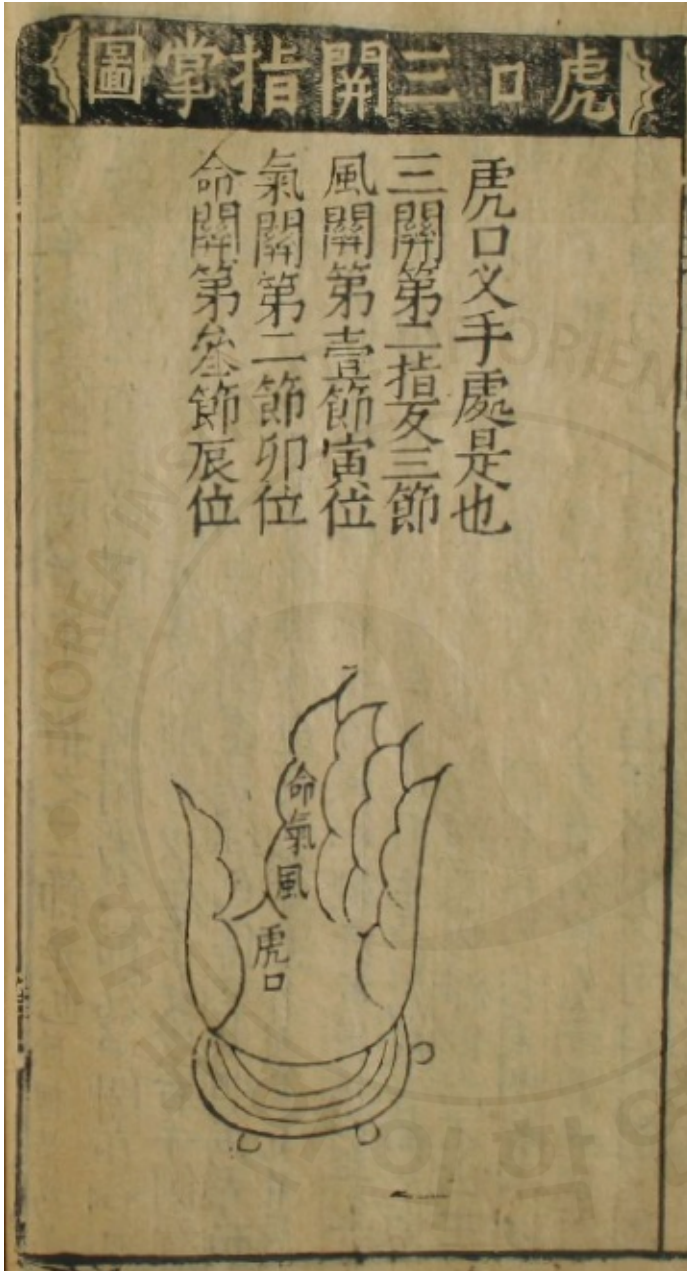 虎口三開指掌圖
虎口叉手處是也
三關第二指三節
風關第壹節寅位
氣關第二節卯位
命關第叄節辰位
命氣風
虎口